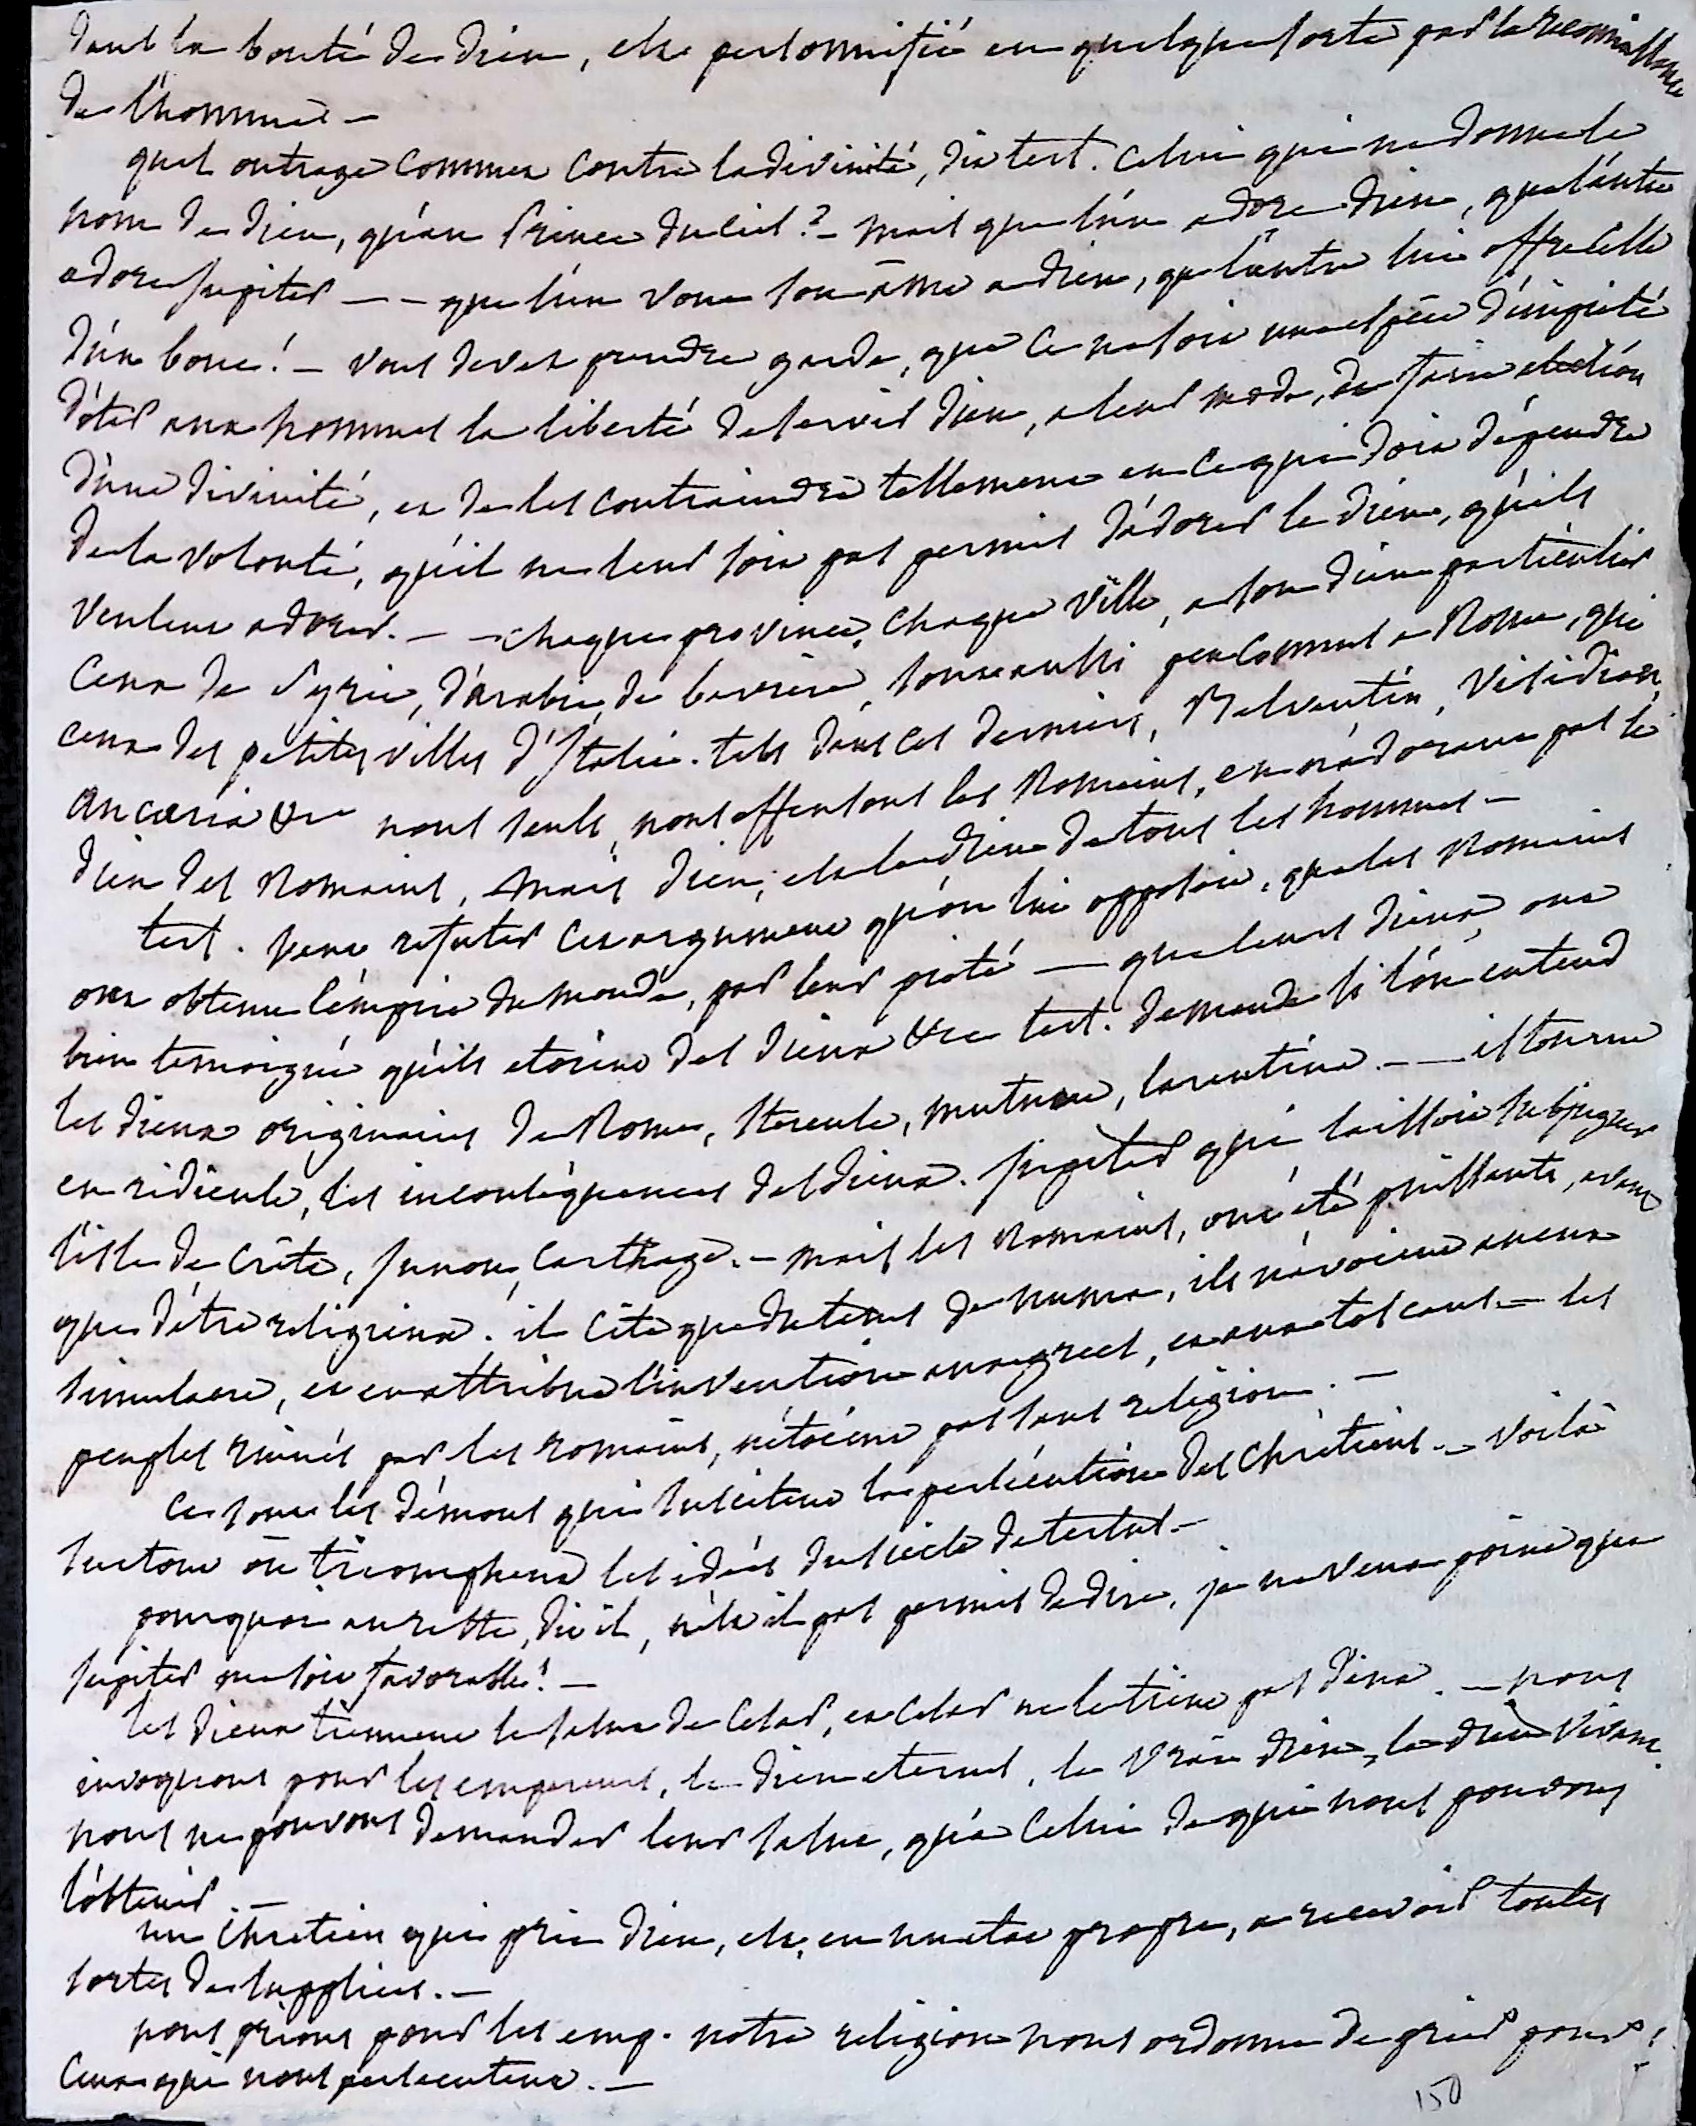 dont la bonté de dieu, est personnifiée en quelque sorte par la reconnaissance
de l'homme —
quel outrage commet contre la divinité, dit tert. celui qui ne donne le
nom de dieu, qu'au Prince du ciel? — mais que l'un adore dieu, que l'autre
adore Jupiter — — que l'un voue son âme a dieu, que l'autre lui offre celle
d'un bouc! — vous devez prendre garde, que ce ne soit une espèce d'impieté
d'oter aux hommes la liberté de servir dieu, a leur mode, de faire election
d'une divinité, et de les contraindre tellement en ce qui doit dépendre
de la volonté, qu'il ne leur soit pas permis d'adorer le dieu, qu'ils
veulent adorer. — — chaque province, chaque ville, a son dieu particulier
ceux de Syrie, d'arabie, de , sont aussi peu connus a Rome, que
ceux des petites villes d'Italie. tels sont ces derniers, Delventin, Visidian,
ancaria &c nous seuls, nous offensons les Romains, en n'adorant pas le
dieu des Romains, mais dieu, est le dieu de tous les hommes —
tert. veut refuter cet argument qu'on lui opposoit, que les Romains
ont obtenu l'empire du monde, par leur pieté — que leurs dieux, ont
bien temoigné qu'ils etoient des dieux &c tert. demande si l'on entend
les dieux originaires de Rome, Stercule, mutune, larentine. — — il tourne
en ridicule, les inconséquences des dieux. Jupiter qui laissoit subjuguer
l'isle de Crête, Junon, Carthage. — mais les Romains, ont été puissants, avant
que d'être religieux. il cite que du temps de numa, ils n'avoient aucun
simulacre, et en attribue l'invention aux grecs, et aux toscans — les
peuples ruinés par les romains, n'étoient pas sans religion. —
ce sont les démons qui suscitent la persécution des Chrétiens. — voilà
surtout où triomphent les idées du siècle de tertul. —
pourquoi au reste, dit il, n'est il pas permis de dire, je ne veux point que
Jupiter me soit favorable! —
les dieux tiennent le salut de César, et César ne le tient pas d'eux. — nous
invoquons pour les empereurs, le dieu eternel, le vrai dieu, le dieu vivant.
nous ne pouvons demander leur salut, qu'a celui de qui nous pouvons
l'obtenir. —
un Chretien qui prie dieu, est, en un etat propre, a recevoir toutes
sortes de supplices. —
nous prions pour les emp. notre religion nous ordonne de prier pour
ceux qui nous persecutent. —
150